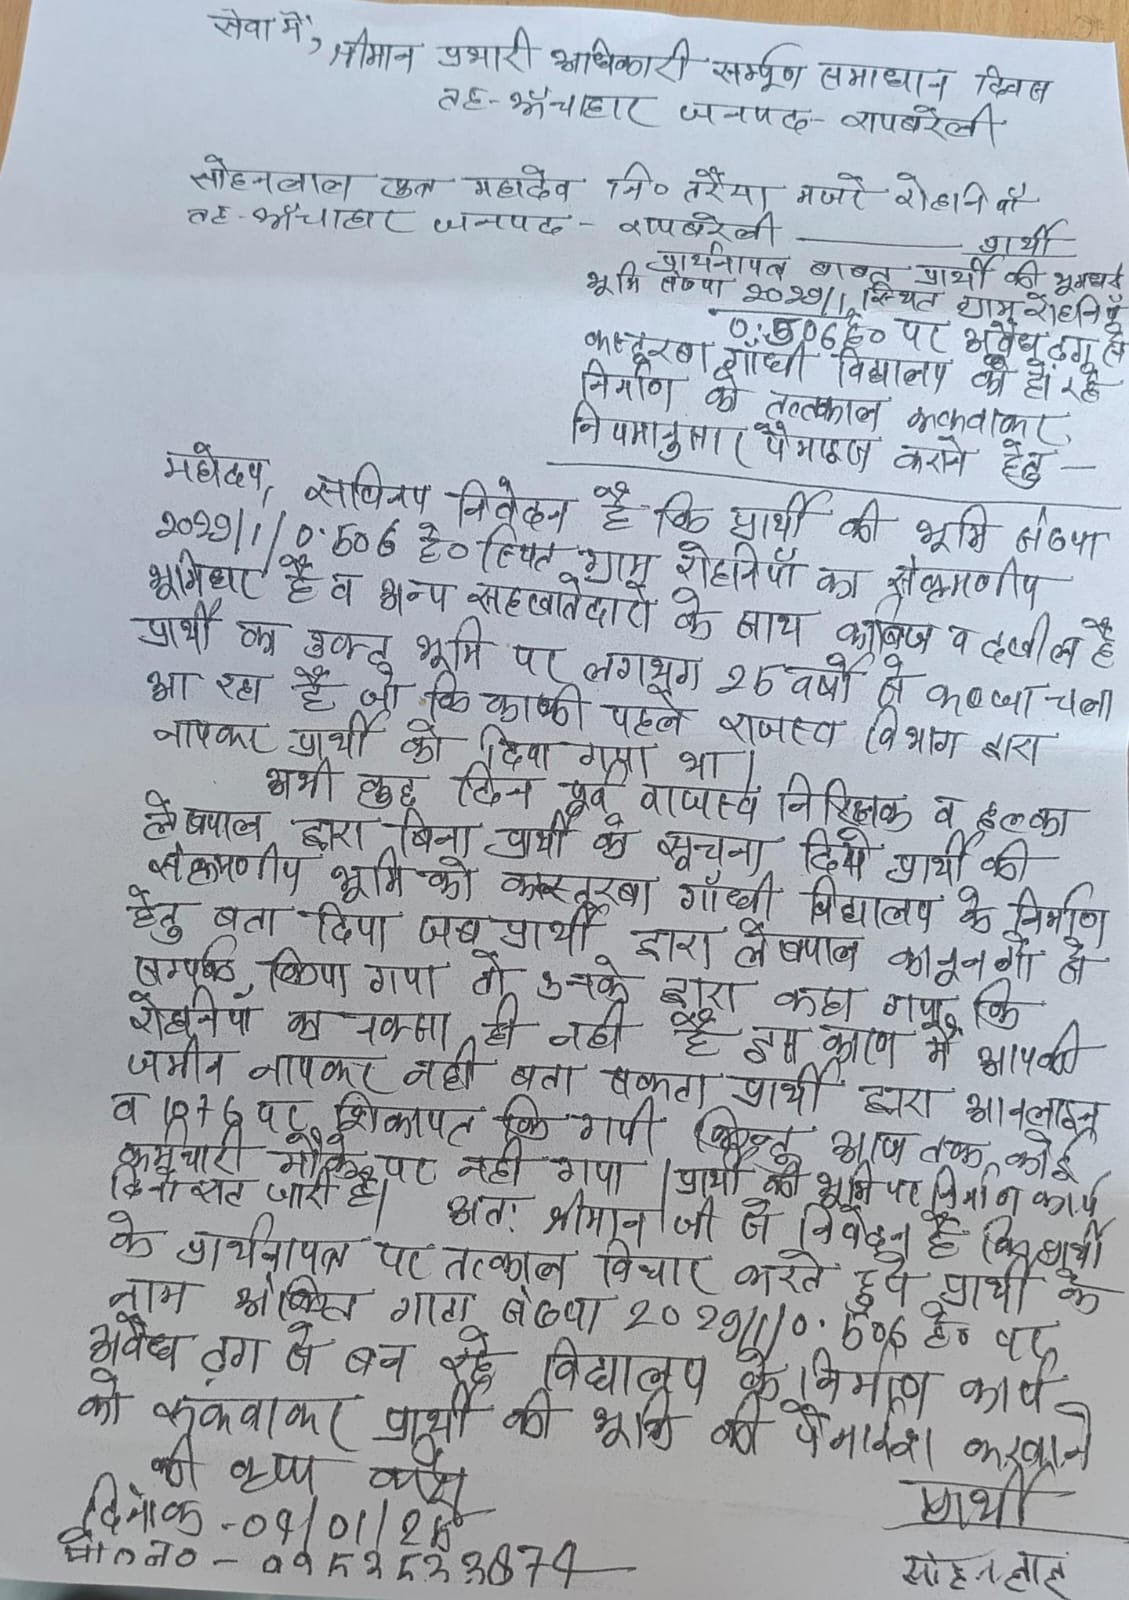 सेवा में,
श्रीमान प्रभारी अधिकारी सर्म्पूण समाधान दिवस
तह-ऊँचाहार जनपद- रायबरेली
सोहनलाल सुत महादेव नि० तरैया मजरे रोहनियाँ
तह-ऊँचाहार जनपद - रायबरेली प्रार्थी
प्रार्थनापत्र बाबत प्रार्थी की भूमधरी
भूमि संख्या 2029/1, स्थित ग्राम रोहनियाँ
0.506हे० पर अवैध ढंग से
कस्तूरबा गाँधी विद्यालय के हो रहे
निर्माण को तत्तकाल रूकवाकर,
नियमानुसार पैमाइश कराने हेतु -
महोदय, सविनय निवेदन है कि प्रार्थी की भूमि संख्या
2029/1/0.506 हे० स्थित ग्राम रोहनियाँ का संक्रमणीय
भूमिधर है व अन्य सहखातेदारों के साथ काबिज व दखील है
प्रार्थी का उक्त भूमि पर लगभग 25 वर्षों से कब्जा चला
आ रहा है जो कि काफी पहले राजस्व विभाग द्वारा
नापकर प्रार्थी को दिया गया था।
अभी कुछ दिन पूर्व राजस्व निरिक्षक व हल्का
लेखपाल द्वारा बिना प्रार्थी के सूचना दिये प्रार्थी की
संक्रमणीय भूमि को कस्तूरबा गाँधी विद्यालय के निर्माण
हेतु बता दिया जब प्रार्थी द्वारा लेखपाल कानूनगो से
सम्पर्क किया गया तो उनके द्वारा कहा गया कि
रोहनियाँ का नक्सा ही नही है इस कारण मैं आपकी
जमीन नापकर नही बता सकता प्रार्थी द्वारा आनलाइन
व 1076 पर शिकायत कि गयी किन्तु आज तक कोई
कर्मचारी मौके पर नही गया। प्रार्थी की भूमि पर निर्माण कार्य
दिन रात जारी है। अतः श्रीमान जी से निवेदन है कि प्रार्थी
के प्रार्थनापत्र पर तत्काल विचार करते हुये प्रार्थी के
नाम अंकित गाटा संख्या 2029/1/0.506 हे० पर
अवैध ढंग से बन रहे विद्यालय के निर्माण कार्य
को रूकवाकर प्रार्थी की भूमि की पैमाइश करवाने
की कृपा करें
प्रार्थी
दिनांक -04/01/25
सोहनलाल
मो०न०-